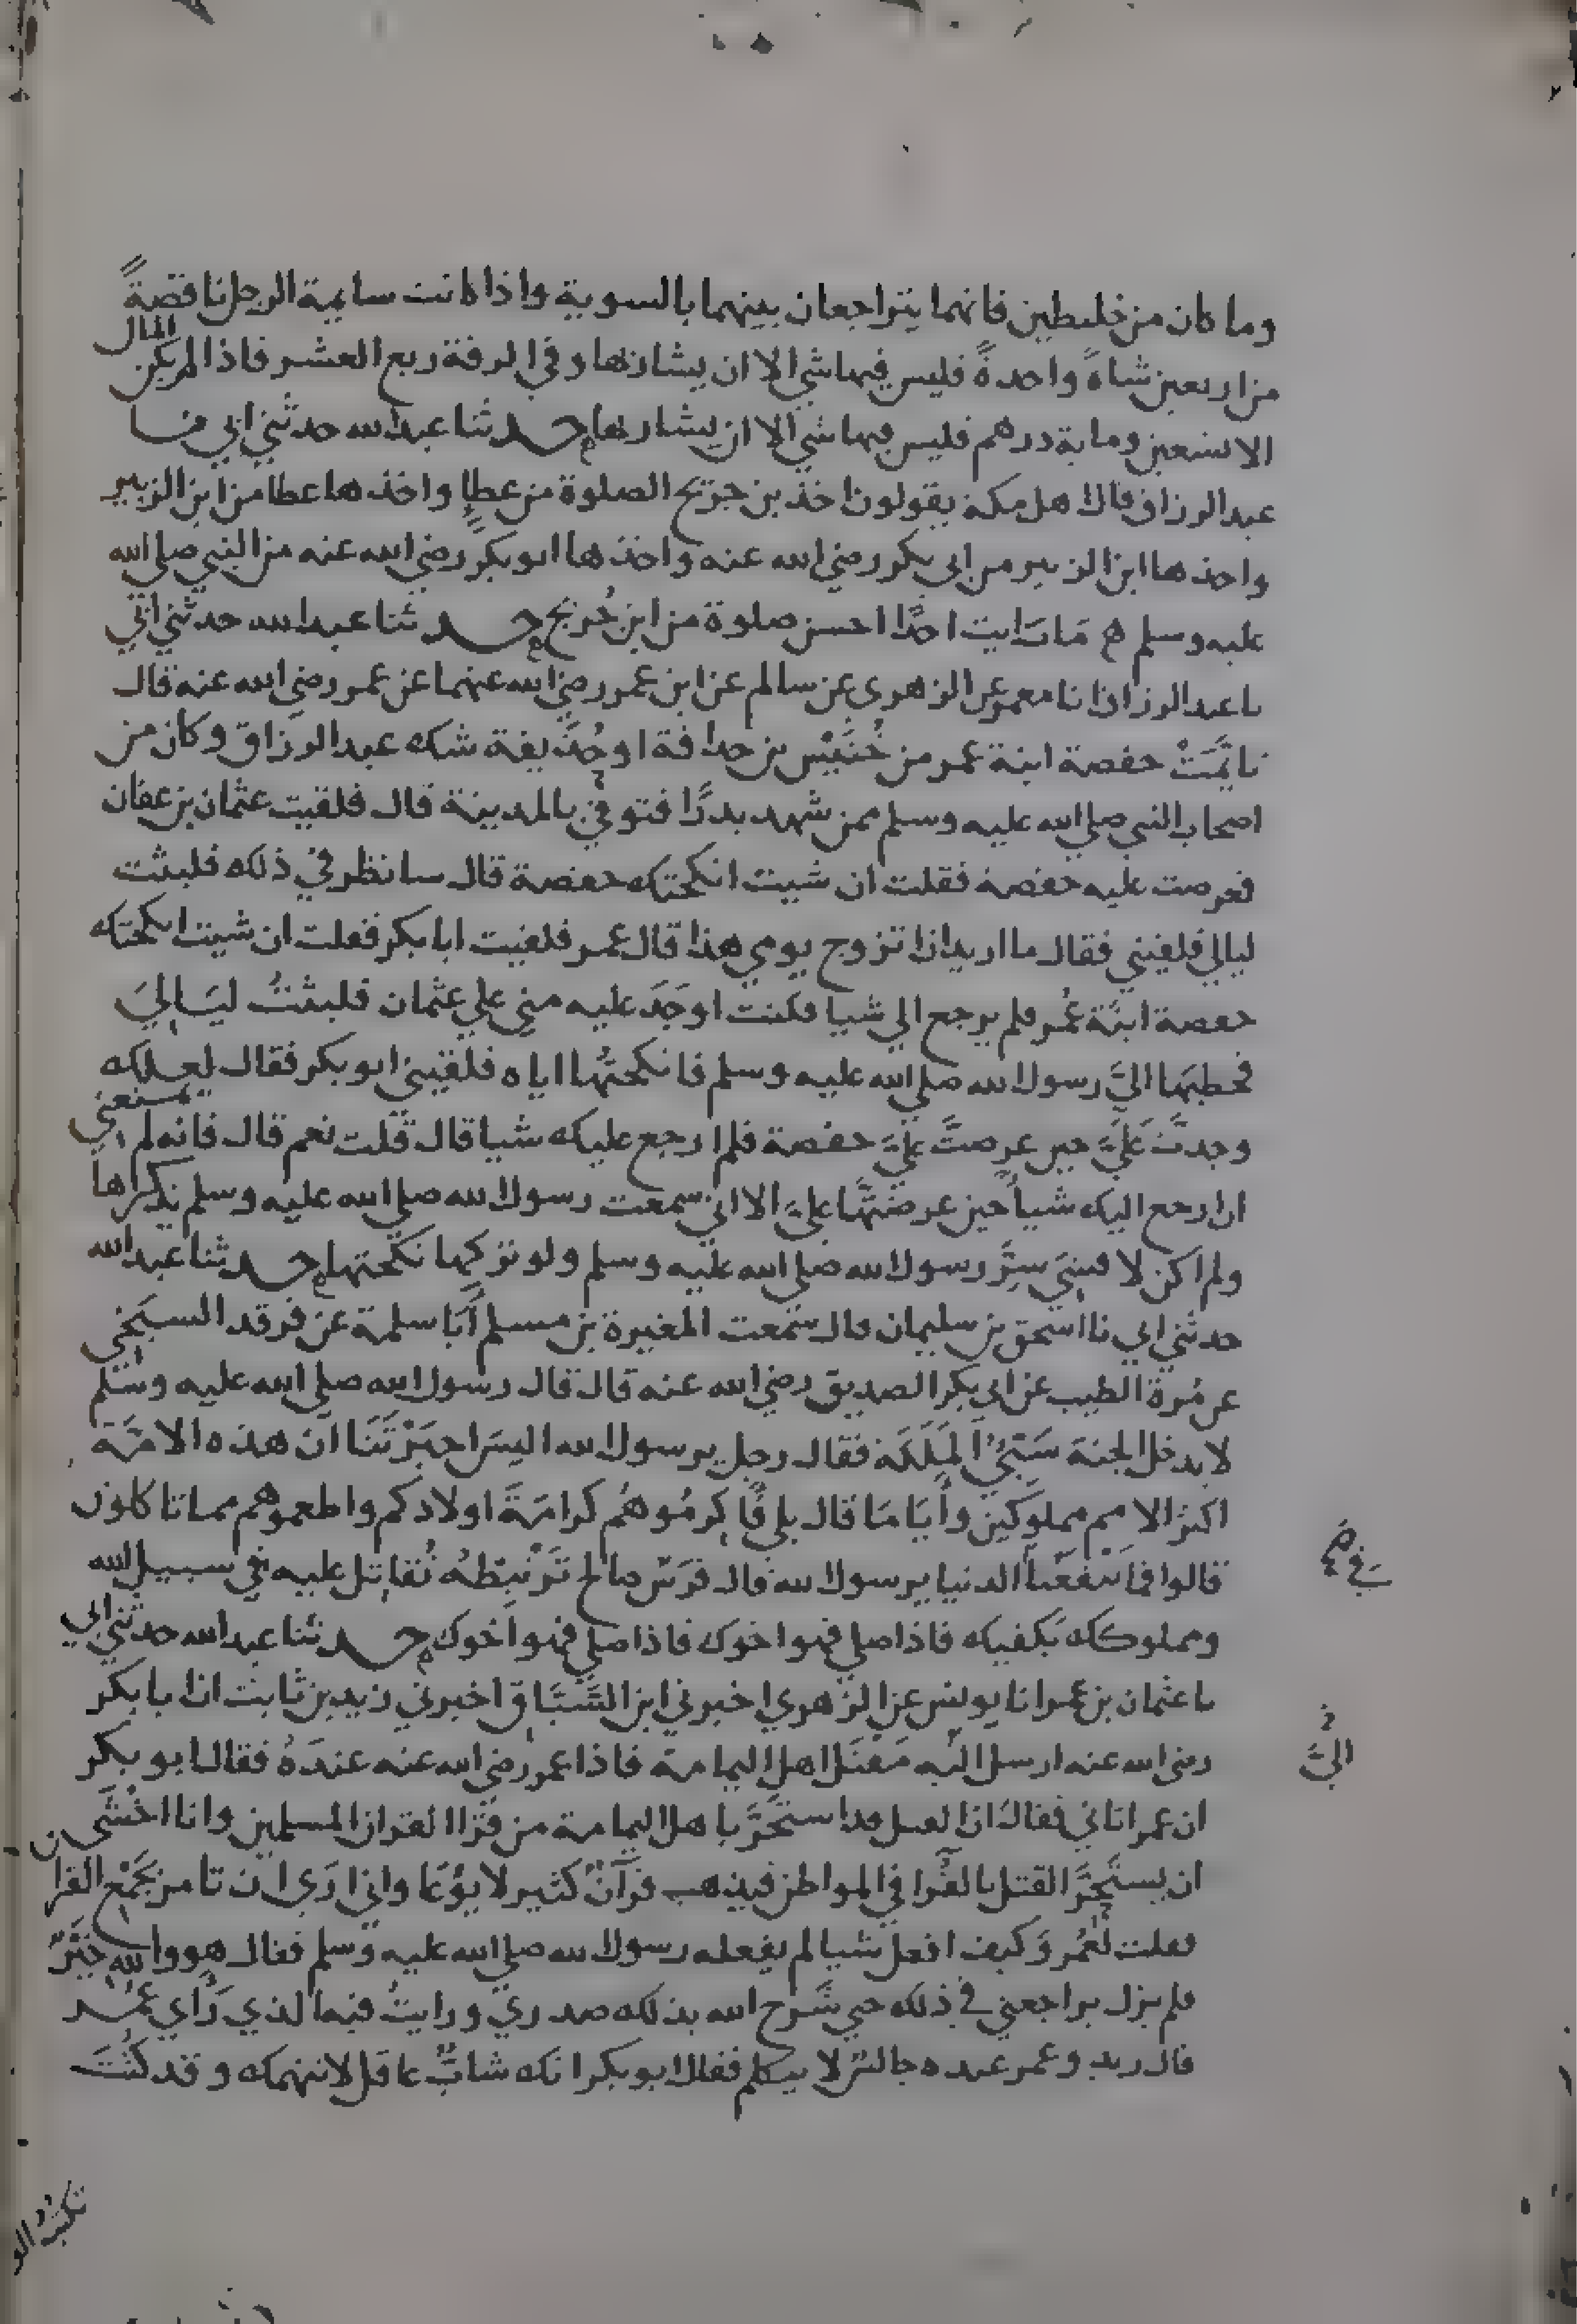 وما كان من خليطين فانهما يتراجعان بينهما بالسوية واذا كانت سايمة الرجل ناقصةً
من اربعين شاةً واحدةً فليس فيها شي الا ان يشا ربها وفي الرقة ربع العشر فاذا لم يكن المال
الا تسعين وماية درهم فليس فيها شي الا ان يشا ربها حدثنا عبد الله حدثني ابي نا
عبد الرزاق قال اهل مكة يقولون اخذ بن جريج الصلوة من عطا واخذها عطا من ابن الزبير
واخذها ابن الزبير من ابي بكر رضي الله عنه واخذها ابو بكر رضي الله عنه من النبي صلى الله
عليه وسلم ما رايت احدًا احسن صلوة من ابن جُريج حدثنا عبد الله حدثني ابي
نا عبد الرزاق انا معمر عن الزهري عن سالم عن ابن عمر رضي الله عنهما عن عمر رضي الله عنه قال
تايَّمَتْ حفصة ابنة عمر من خُنَيْس بن حذافة او حُذَيفة شك عبد الرزاق وكان من
اصحاب النبي صلى الله عليه وسلم ممن شهد بدرًا فتوفي بالمدينة قال فلقيت عثمان بن عفان
فعرضت عليه حفصة فقلت ان شيت انكحتك حفصة قال سانظر في ذلك فلبثت
ليالي فلقيني فقال ما اريد ان اتزوج يومي هذا قال عمر فلقيت ابا بكر فقلت ان شيت انكحتك
حفصة ابنة عُمر فلم يرجع الي شيا فكنت اوجَدَ عليه مني على عثمان فلبثتُ لياليَ
فخطبها اليَّ رسول الله صلى الله عليه وسلم فانكحتُها اياه فلقيني ابو بكر فقال لعلك
وجدتَ عَلَيَّ حين عرضتَ عليَّ حفصة فلم ارجع عليك شيا قال قلت نعم قال فانه لم يمنعني
ان ارجع اليك شياً حين عرضتَها عليَّ الا اني سمعت رسول الله صلى الله عليه وسلم يذكرها
ولم اكن لافشي سِرَّ رسول الله صلى الله عليه وسلم ولو تركها نكحتها حدثنا عبد الله
حدثني ابي نا اسحق بن سليمان قال سمعت المغيرة بن مسلم أبا سلمة عن فرقد السبَخي
عن مُرة الطيب عن ابي بكر الصديق رضي الله عنه قال قال رسول الله صلى الله عليه وسلم
لا يدخل الجنة سَيّئُ المَلَكَة فقال رجل يرسول الله اليس اخبَرْتَنَا ان هذه الامَّة
اكثر الامم مملوكين وأيَامَا قال بلى فاكرمُوهُم كرامَةَ اولادكم واطعموهم مما تاكلون
قالوا فما ينفعنا الدنيا يرسول الله قال فرَسٌ صالح تَرْتبِطُهُ تُقاتل عليه في سبيل الله
ومملوكك يَكفيك فاذا صلى فهو اخوك فاذا صلى فهو اخوك حدثنا عبد الله حدثني ابي
نا عثمان بن عمر انا يونس عن الزهري اخبرني ابن السَّبَّاق اخبرني زيد بن ثابت ان ابا بكر
رضي الله عنه ارسل اليه مَقتَل اهل اليمامة فاذا عمر رضي الله عنه عندَهُ فقال ابو بكر
اليَّ
ان عمر اتاني فقال ان القتل قد استَحَرَّ باهل اليمامة من قرّا القران المسلمين وانا اخْشَى
ان يستَحِرَّ القتل بالقُرا في المواطن فيذهب قرآنٌ كثير لا يُوْعَا واني ارَى ان تامر بجَمْع القرا
فقلت لعُمر وَكيف افعل شيا لم يفعله رسول الله صلى الله عليه وسلم فقال هو والله خَيْرٌ
فلم يزل يراجعني في ذلك حتى شَرَح الله بذلك صدري ورايتُ فيه الذي رَأي عُمر
قال زيد وعمر عنده جالسٌ لا يتكلم فقال ابو بكر انك شابٌ عاقل لا نتهمك وقد كُنتَ